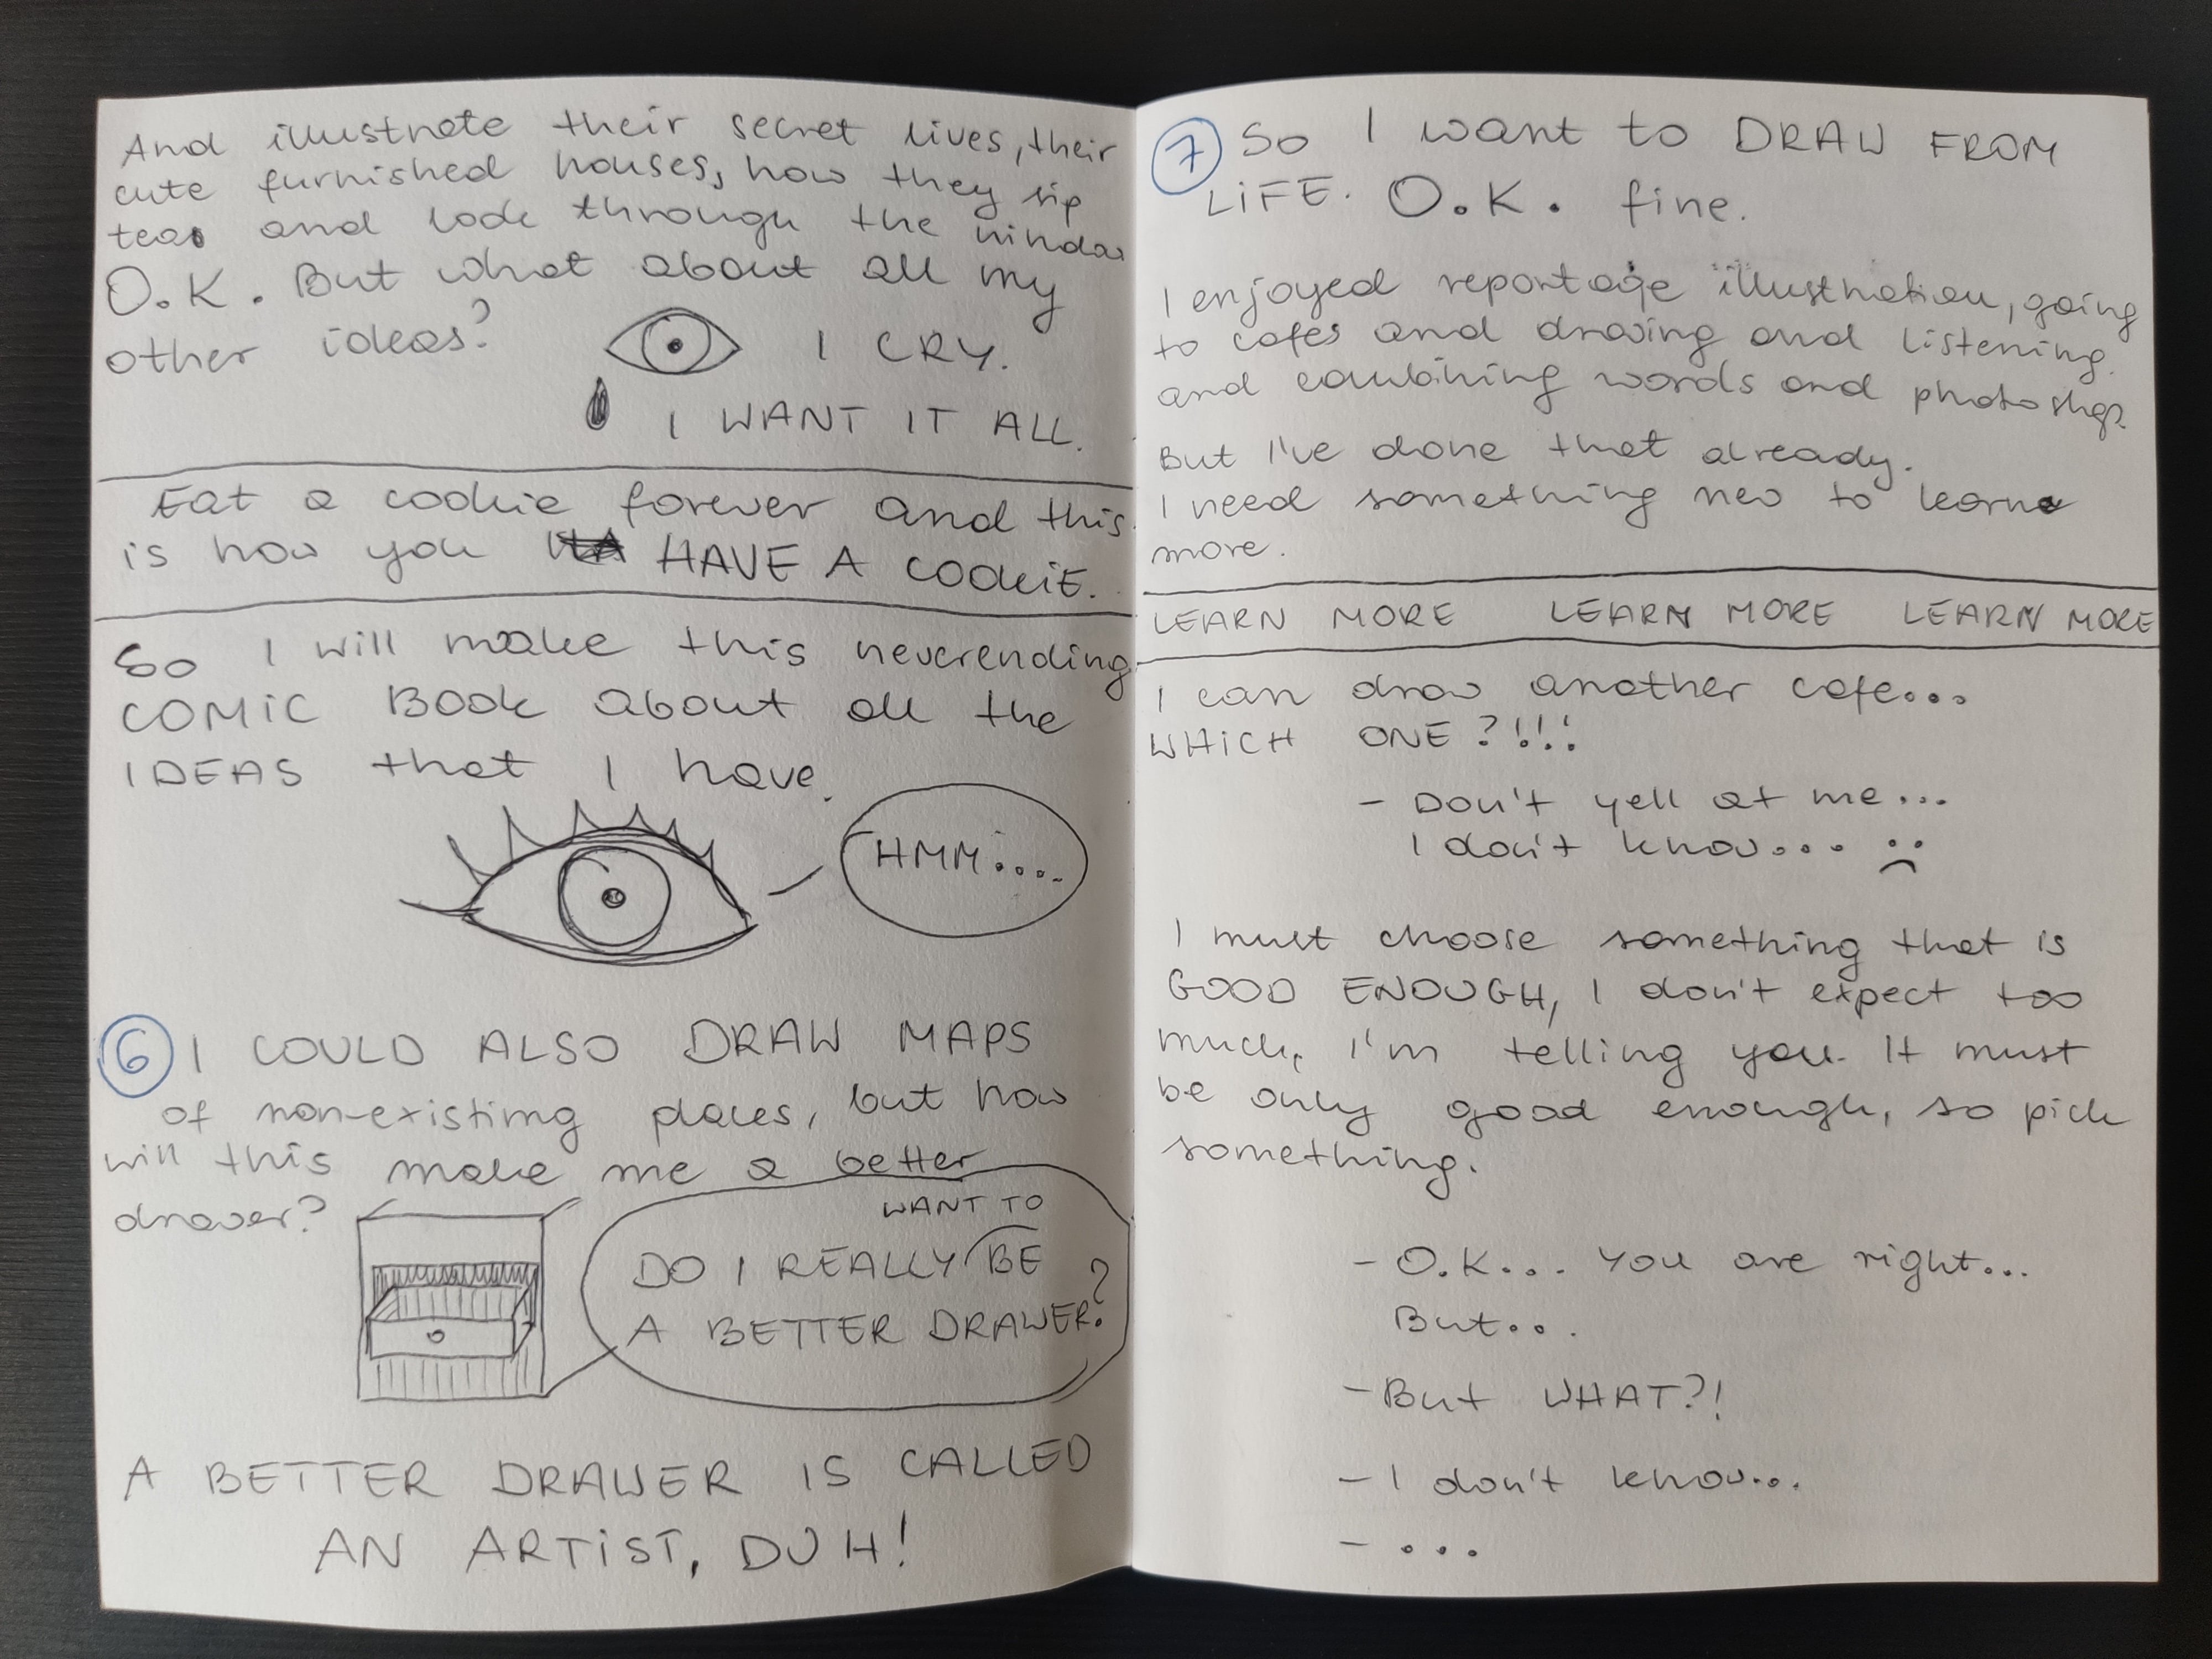 And illustrate their secret lives, their
cute furnished houses, how they sip
teas and look through the window
O.K. But what about all my
other ideas?
I CRY.
I WANT IT ALL.
Eat a cookie forever and this
is how you HAVE A COOKIE.
So I will make this neverending
COMIC BOOK about all the
IDEAS that I have.
HMM....
6 I COULD ALSO DRAW MAPS
of non-existing places, but how
will this make me a better
drawer?
WANT TO
DO I REALLY BE
A BETTER DRAWER?
A BETTER DRAWER IS CALLED
AN ARTIST, DUH!
7 So I want to DRAW FROM
LIFE. O.K. fine.
I enjoyed reportage illustration, going
to cafes and drawing and listening
and combining words and photoshop.
But I've done that already.
I need something new to learn
more.
LEARN MORE LEARN MORE LEARN MORE
I can draw another cafe...
WHICH ONE?!!!
- Don't yell at me...
I don't know... :(
I must choose something that is
GOOD ENOUGH, I don't expect too
much, I'm telling you. It must
be only good enough, so pick
something.
- O.K... You are right...
But...
- But WHAT?!
- I don't know...
- ...